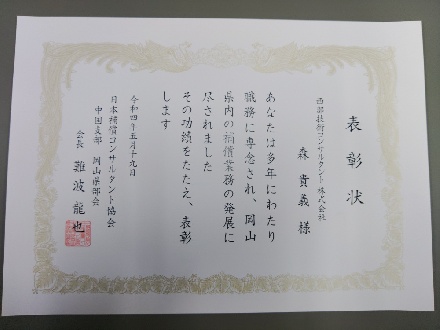 表彰状
西部技術コンサルタント株式会社
森 貴義 様
あなたは多年にわたり
職務に専念され、岡山
県内の補償業務の発展に
尽されました
その功績をたたえ、表彰
します
令和四年五月十九日
日本補償コンサルタント協会
中国支部 岡山県部会
会長 難波 龍也